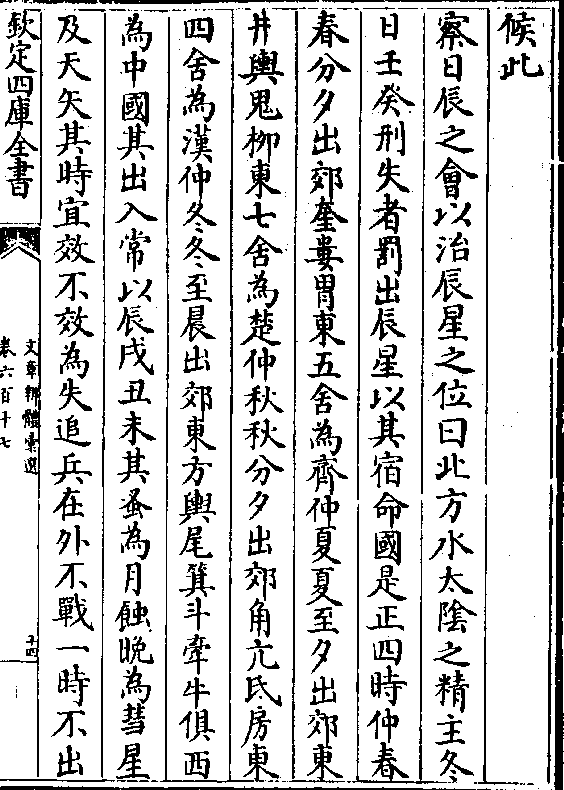 候此
察日辰之會以治辰星之位曰北方水太隂之精主冬
日壬癸刑失者罰出辰星以其宿命國是正四時仲春
春分夕出郊奎婁胃東五舍為齊仲夏夏至夕出郊東
井輿鬼栁東七舍為楚仲秋秋分夕出郊角亢氐房東
四舍為漢仲冬冬至晨出郊東方輿尾箕斗牽牛俱西
為中國其出入常以辰戌丑未其蚤為月蝕晚為彗星
及天矢其時宜效不效為失追兵在外不戰一時不出
欽定四庫全書
文章辨體彚選
卷六百十七
五十四